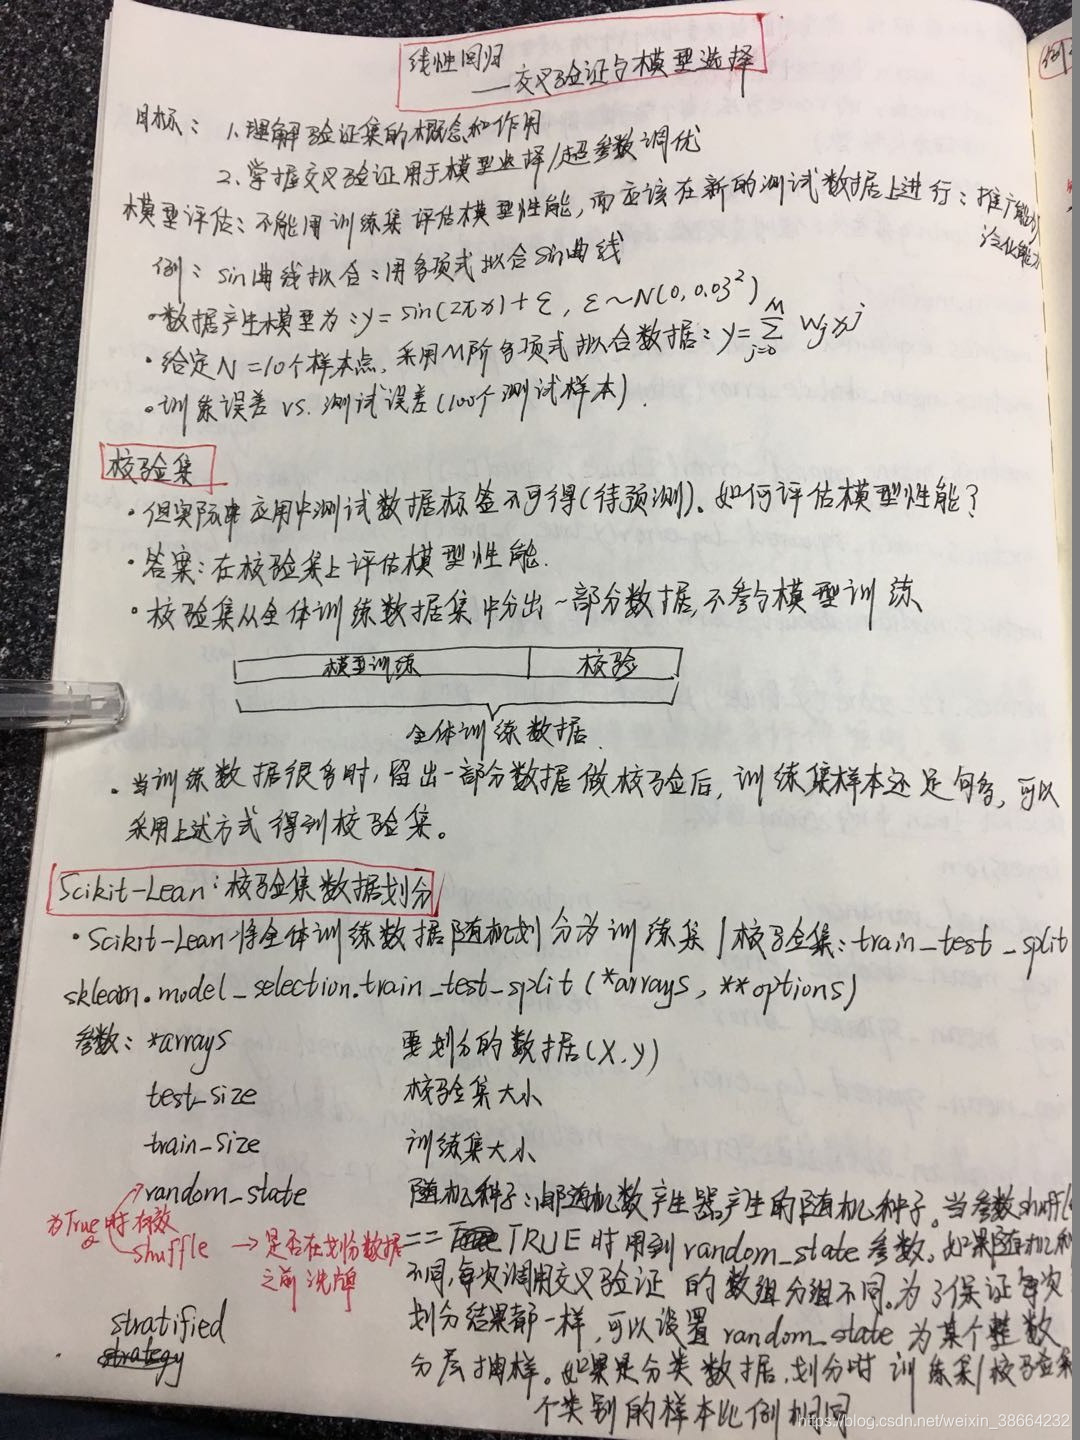 线性回归
——交叉验证与模型选择
目标: 1.理解验证集的概念和作用
2、掌握交叉验证用于模型选择/超参数调优
模型评估:不能用训练集评估模型性能,而应该在新的测试数据上进行:推广能力
泛化能力
例: sin曲线拟合:用多项式拟合sin曲线
•数据产生模型为:y=sin(2πx)+ε, ε~N(0,0.03²)
•给定N=10个样本点,采用M阶多项式拟合数据:y=∑_{j=0}^{M} w_j x^j
•训练误差 vs.测试误差(100个测试样本).
校验集
•但实际中应用中测试数据标签不可得(待预测)。如何评估模型性能?
•答案:在校验集上评估模型性能.
•校验集从全体训练数据集中分出一部分数据,不参与模型训练
模型训练 校验
全体训练数据
•当训练数据很多时,留出一部分数据做校验后,训练集样本还足够多,可以
采用上述方式得到校验集。
Scikit-Lean:校验集数据划分
•Scikit-Lean将全体训练数据随机划分为训练集/校验集:train_test_split
sklearn.model_selection.train_test_split(*arrays, **options)
参数: *arrays 要划分的数据(X,y)
test_size 校验集大小
train_size 训练集大小
random_state 随机种子:由随机数产生器产生的随机种子。当参数shuffle
为True时有效
shuffle →是否在划分数据之前洗牌 ==TRUE时用到random_state参数。如果随机种
不同,每次调用交叉验证的数组分组不同。为了保证每次
stratified 划分结果都一样,可以设置random_state为某个整数
strategy 分层抽样。如果是分类数据,划分时训练集/校验集
个类别的样本比例相同
https://blog.csdn.net/weixin_38664232